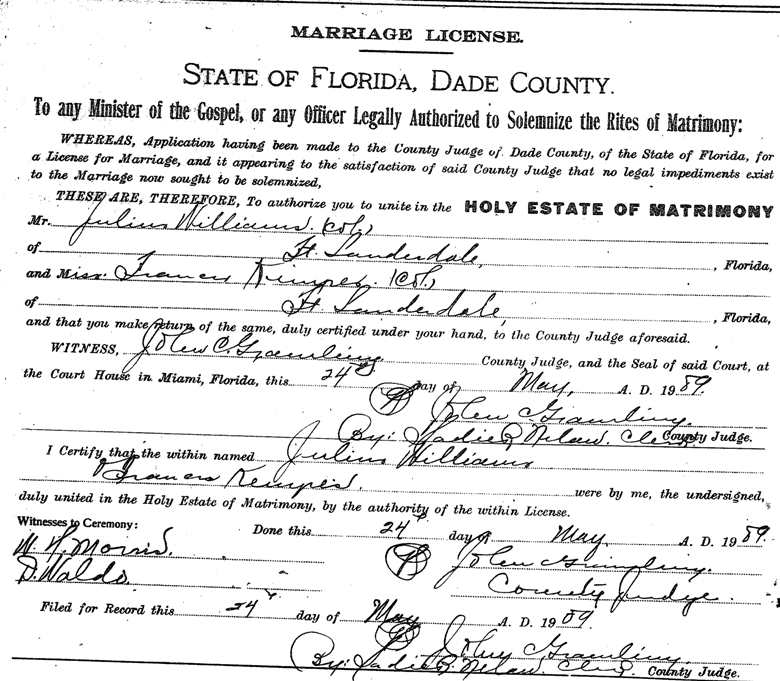 MARRIAGE LICENSE.
STATE OF FLORIDA, DADE COUNTY.
To any Minister of the Gospel, or any Officer Legally Authorized to Solemnize the Rites of Matrimony:
WHEREAS, Application having been made to the County Judge of Dade County, of the State of Florida, for
a License for Marriage, and it appearing to the satisfaction of said County Judge that no legal impediments exist
to the Marriage now sought to be solemnized,
THESE ARE, THEREFORE, To authorize you to unite in the HOLY ESTATE OF MATRIMONY
Mr. Julius Williams. (Col.)
of Ft Lauderdale, , Florida,
and Miss. Frances (Col.)
of Ft Lauderdale, , Florida,
and that you make return of the same, duly certified under your hand, to the County Judge aforesaid.
WITNESS, John C. Gramling County Judge, and the Seal of said Court, at
the Court House in Miami, Florida, this 24th day of May, A. D. 1909.
John C. Gramling.
By: Sadie Clerk County Judge.
I Certify that the within named Julius Williams
& Frances
were by me, the undersigned,
duly united in the Holy Estate of Matrimony, by the authority of the within License.
Witnesses to Ceremony: Done this 24 day of May, A. D. 1909.
Morris. John Gramling.
D. Waldo. County Judge.
Filed for Record this 24 day of May A. D. 1909.
John Gramling.
By: Sadie Clerk. County Judge.